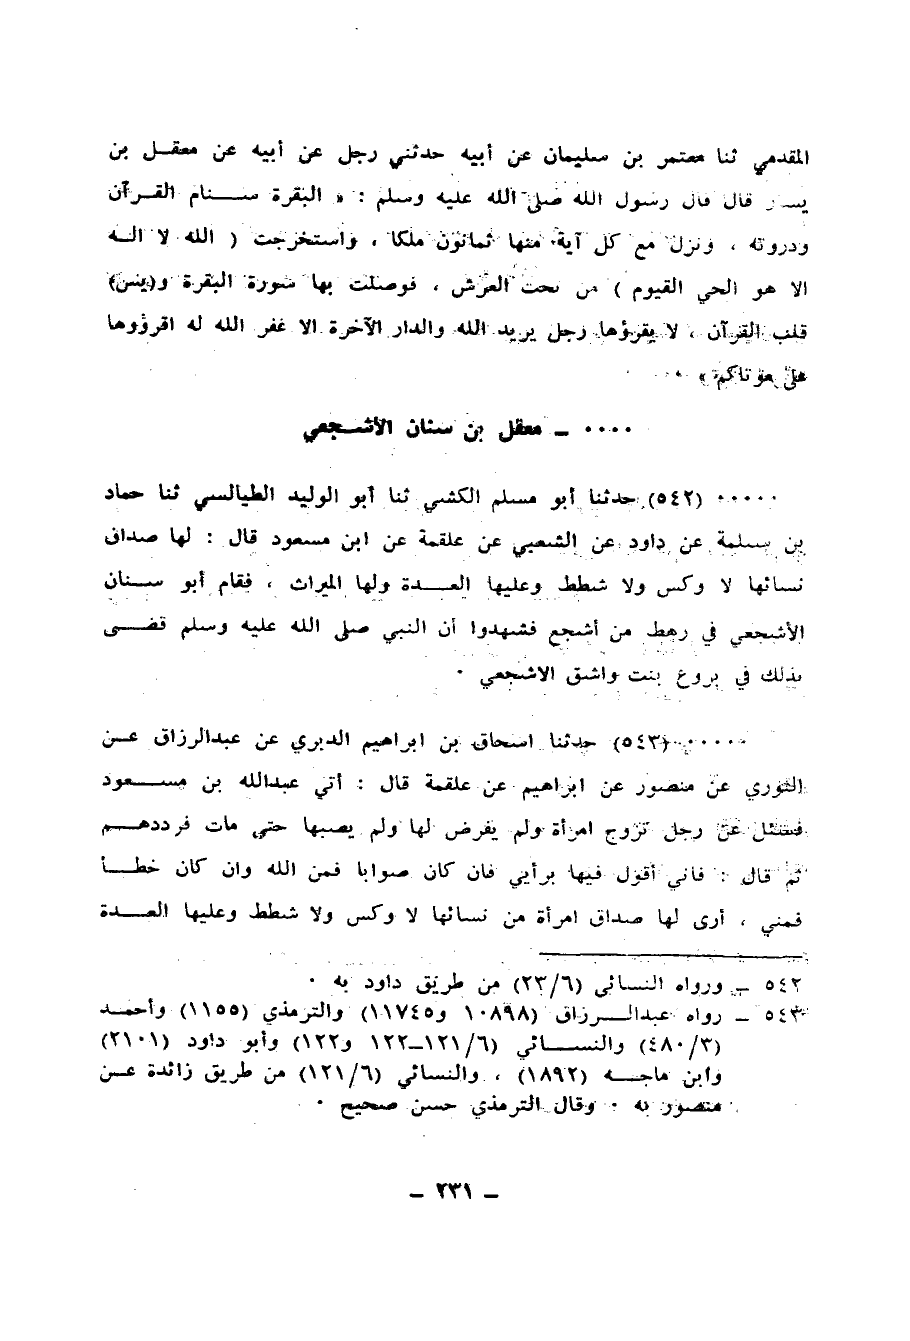 المقدمي ثنا معتمر بن سليمان عن أبيه حدثني رجل عن أبيه عن معقـل بن
يسـار قال قال رسول الله صلى الله عليه وسلم : « البقرة ســنام القـرآن
وذروته ، ونزل مع كل آية منها ثمانون ملكا ، واستخرجت ( الله لا الـه
الا هو الحي القيوم ) من تحت العرش ، فوصلت بها سورة البقرة و(يس)
قلب القرآن ، لا يقرؤها رجل يريد الله والدار الآخرة الا غفر الله له اقرؤوها
على موتاكم » ٠
٠٠٠٠ ـ معقل بن سنان الأشـجعي
٠٠٠٠٠ (٥٤٢) حدثنا أبو مسلم الكشي ثنا أبو الوليد الطيالسي ثنا حماد
بن سلمة عن داود عن الشعبي عن علقمة عن ابن مسعود قال : لها صداق
نسائها لا وكس ولا شطط وعليها العــدة ولها الميراث ، فقام أبو ســنان
الأشجعي في رهط من أشجع فشهدوا أن النبي صلى الله عليه وسلم قضــى
بذلك في بروع بنت واشق الاشجعي ٠
٠٠٠٠٠ (٥٤٣) حدثنا اسحاق بن ابراهيم الدبري عن عبدالرزاق عـن
الثوري عن منصور عن ابراهيم عن علقمة قال : أتي عبدالله بن مســعود
فسئل عن رجل تزوج امرأة ولم يفرض لها ولم يصبها حتى مات فرددهــم
ثم قال : فاني أقول فيها برأيي فان كان صوابا فمن الله وان كان خطــأ
فمني ، أرى لها صداق امرأة من نسائها لا وكس ولا شطط وعليها العــدة
٥٤٢ ـ ورواه النسائي (٢٣/٦) من طريق داود به ٠
٥٤٣ ـ رواه عبدالــرزاق (١٠٨٩٨ و١١٧٤٥) والترمذي (١١٥٥) وأحمـد
(٤٨٠/٣) والنســائي (١٢١/٦ـ١٢٢ و١٢٢) وأبو داود (٢١٠١)
وابن ماجــه (١٨٩٢) ، والنسائي (١٢١/٦) من طريق زائدة عـن
منصور به ٠ وقال الترمذي حسن صحيح ٠
ـ ٢٣١ ـ